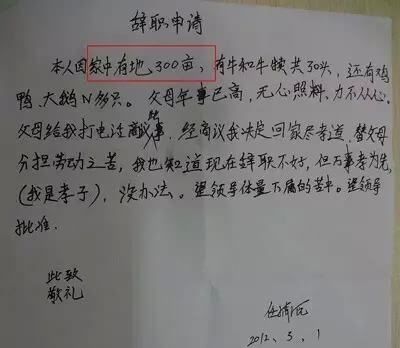 辞职申请
本人因家中有地300亩、有牛和牛犊共30头,还有鸡
鸭、大鹅N多只。父母年事已高,无心照料、力不从心。
父母给我打电话商议事,经商议我决定回家尽孝道、替父母
分担劳动之苦,我也知道现在辞职不好,但百事孝为先,
(我是孝子),没办法。望领导体量下属的苦中。望领导
批准.
此致
敬礼
2012、5、1